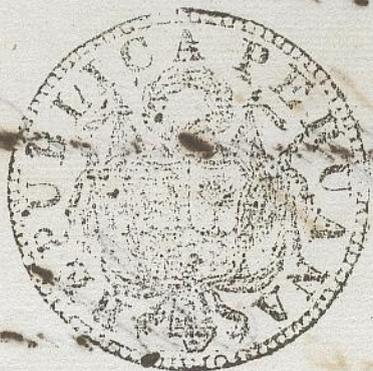 REPUBLICA PERUANA